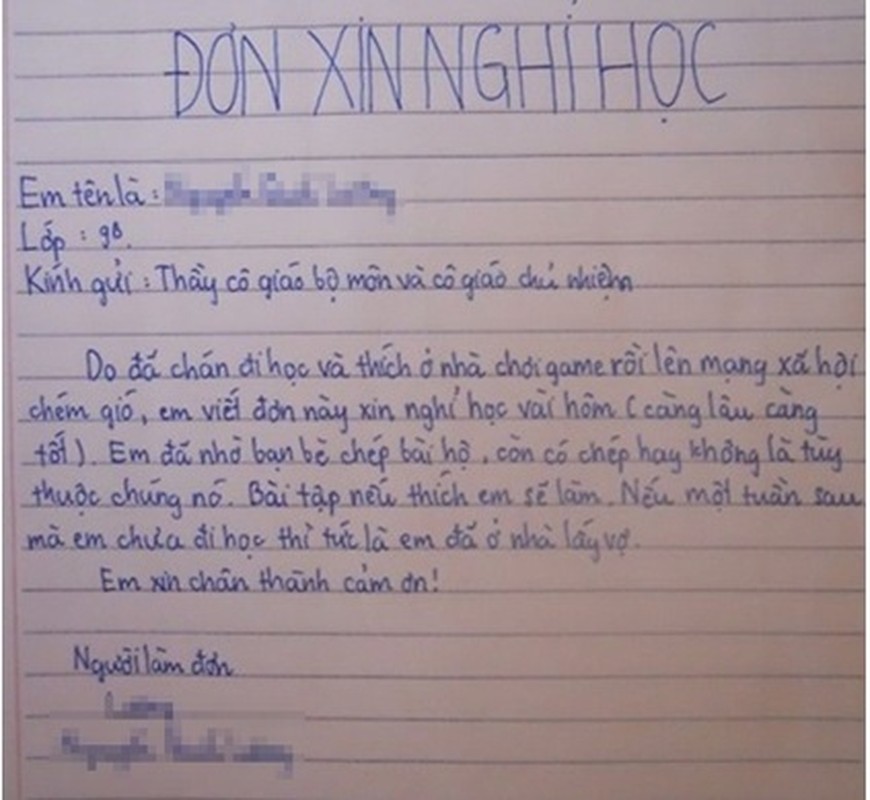 ĐƠN XIN NGHỈ HỌC
Em tên là :
Lớp : 9B.
Kính gửi : Thầy cô giáo bộ môn và cô giáo chủ nhiệm
Do đã chán đi học và thích ở nhà chơi game rồi lên mạng xã hội
chém gió, em viết đơn này xin nghỉ học vài hôm (càng lâu càng
tốt). Em đã nhờ bạn bè chép bài hộ, còn có chép hay không là tùy
thuộc chúng nó. Bài tập nếu thích em sẽ làm. Nếu một tuần sau
mà em chưa đi học thì tức là em đã ở nhà lấy vợ.
Em xin chân thành cảm ơn!
Người làm đơn